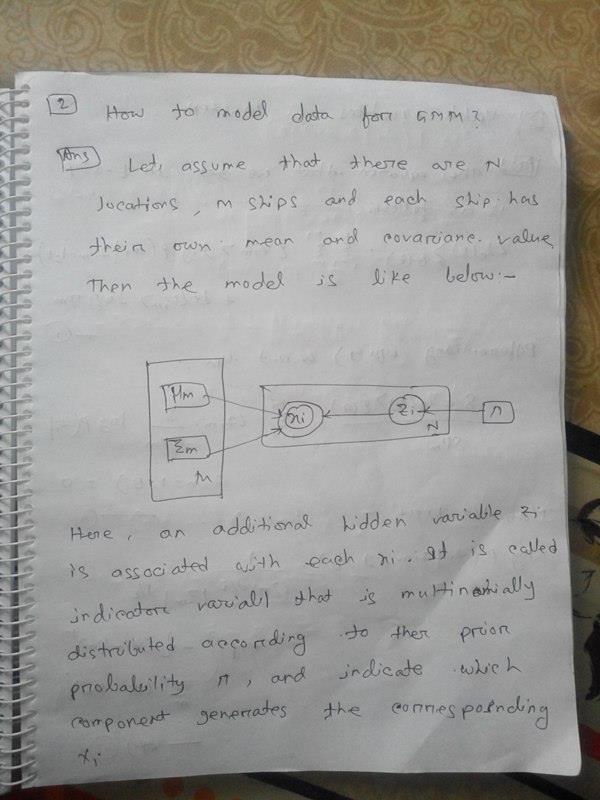 2 How to model data for GMM?
Ans Let, assume that there are N
locations, m ships and each ship has
their own mean and covarianc value,
Then the model is like below:-
μm
Σm
M
xi
zi
N
π
Here, an additional hidden variable zi
is associated with each xi. It is called
indicator variabl that is multinomially
distributed according to ther prior
probability π, and indicate which
component generates the correspoinding
xi